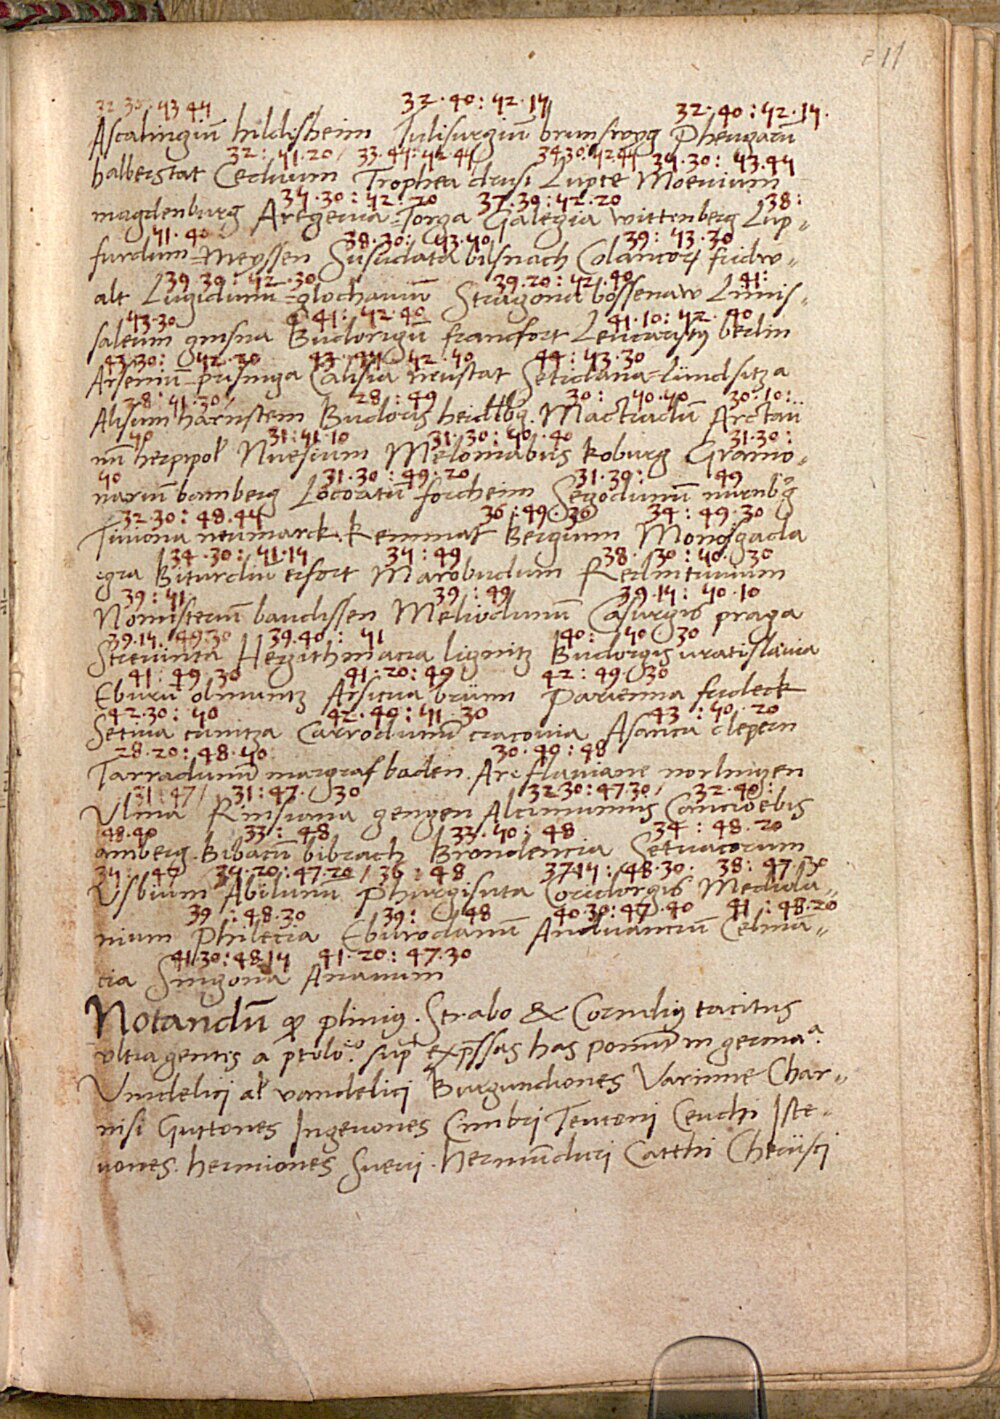 211
32 30 : 43 44 32 · 40 : 42 · 14 32 · 40 : 42 · 14 ·
Ascalingiū hildisheim Tulisurgiū brunswygg Pheugarū
32 : 41 · 20 / 33 · 44 : 42 · 44 34 30 : 42 44 34 · 30 : 43 · 44
halberstat Cecluum Trophea drusi Lupte Moeuium
34 · 30 : 42 : 20 37 · 30 : 42 · 20 38 :
magdenburg Aregeuia = Torga Galegia wittenberg Lup =
41 · 40 38 · 30 : 43 · 40 39 : 43 · 30
furdum = Meyssen Susudata bilsnach Colancorū fridw =
39 · 30 : 42 · 30 39 · 20 : 42 · 40 41 :
alt Lugidunū = glochauiū Stragona bossenaw Limis =
43 · 30 41 : 42 · 40 41 · 10 : 42 · 40
saleum gnisna Budorigū francfort Leucaristꝰ berlin
43 · 30 : 42 · 20 43 · 44 : 42 · 40 44 : 43 · 30
Arseniū = prisniga Calisia neustat Setidaua = Lundsitza
28 : 41 · 30 / 28 : 49 30 : 40 · 40 30 · 10 :
Alisum harnstem Budoris heidlbg. Mactiadū Arctau
40 31 : 41 · 10 31 · 30 : 40 · 40 31 · 30 :
nū herpipol Nuesium Melomabus koburg Grauio =
40 31 · 30 : 49 · 20 31 · 39 : 49
nariū bamberg Locoritū forcheim Segodunū nurnbg
32 · 30 : 48 · 44 36 : 49 · 36 34 : 49 · 30
Tiuiona neumarck · kemmat Bergium Monosgada
34 · 30 : 41 · 14 34 : 49 38 · 30 : 40 · 30
egra Biturdiū erfort Marobudum Redintuinum
39 : 41 39 : 49 39 · 14 : 40 · 10
Nomisteriū baudissen Meliodunū Casurgis praga
39 · 14 · 49 · 30 39 · 40 : 41 40 : 40 30
Streuinta Hegithmacia lignitz Budorgis uratislauia
41 : 49 30 41 : 20 : 49 42 : 49 30
Eburū olmuntz Arsitua brünn Parienna frideck
42 · 30 : 40 42 · 40 : 41 30 43 : 40 · 20
Setiua cunitza Carrodunū cracouia Asanca clepern
28 · 20 : 48 · 40 30 · 40 : 48
Tarradunū margraf baden · Are flauiane norlingen
31 : 47 / 31 : 47 · 30 32 30 : 47 · 30 / 32 · 40 :
Vlma Riusiana gengen Alcimumis Cancioebis
48 · 40 33 : 48 33 · 40 : 48 34 : 48 · 20
amberg · Bibacū bibrach Brondencia Setuacorum
34 : 47 34 · 20 : 47 · 20 / 36 : 48 37 14 : 48 · 30 · 38 : 47 30
Vsbium Abilunū Phurgisuta Coridorgis Mediola =
39 : 48 · 30 39 : 48 40 · 30 : 47 · 40 41 : 48 · 20
nium Philecia Eburodanū Anduanciū Celma =
41 · 30 : 48 14 41 · 20 : 47 · 30
cia Singona Anauum
Notandū ꝙ plinius · Strabo & Cornelius tacitus
ultra gentes a ptolo. supͣ expressas has ponūt in germaᵃ.
Vindelici al vandelici Burgundiones Varinne Char =
nisi Guttones Ingeuones Cimbri Teutoni Ceuchi Iste =
uones · hermiones Sueui · hermūduri Catthi Cherusci